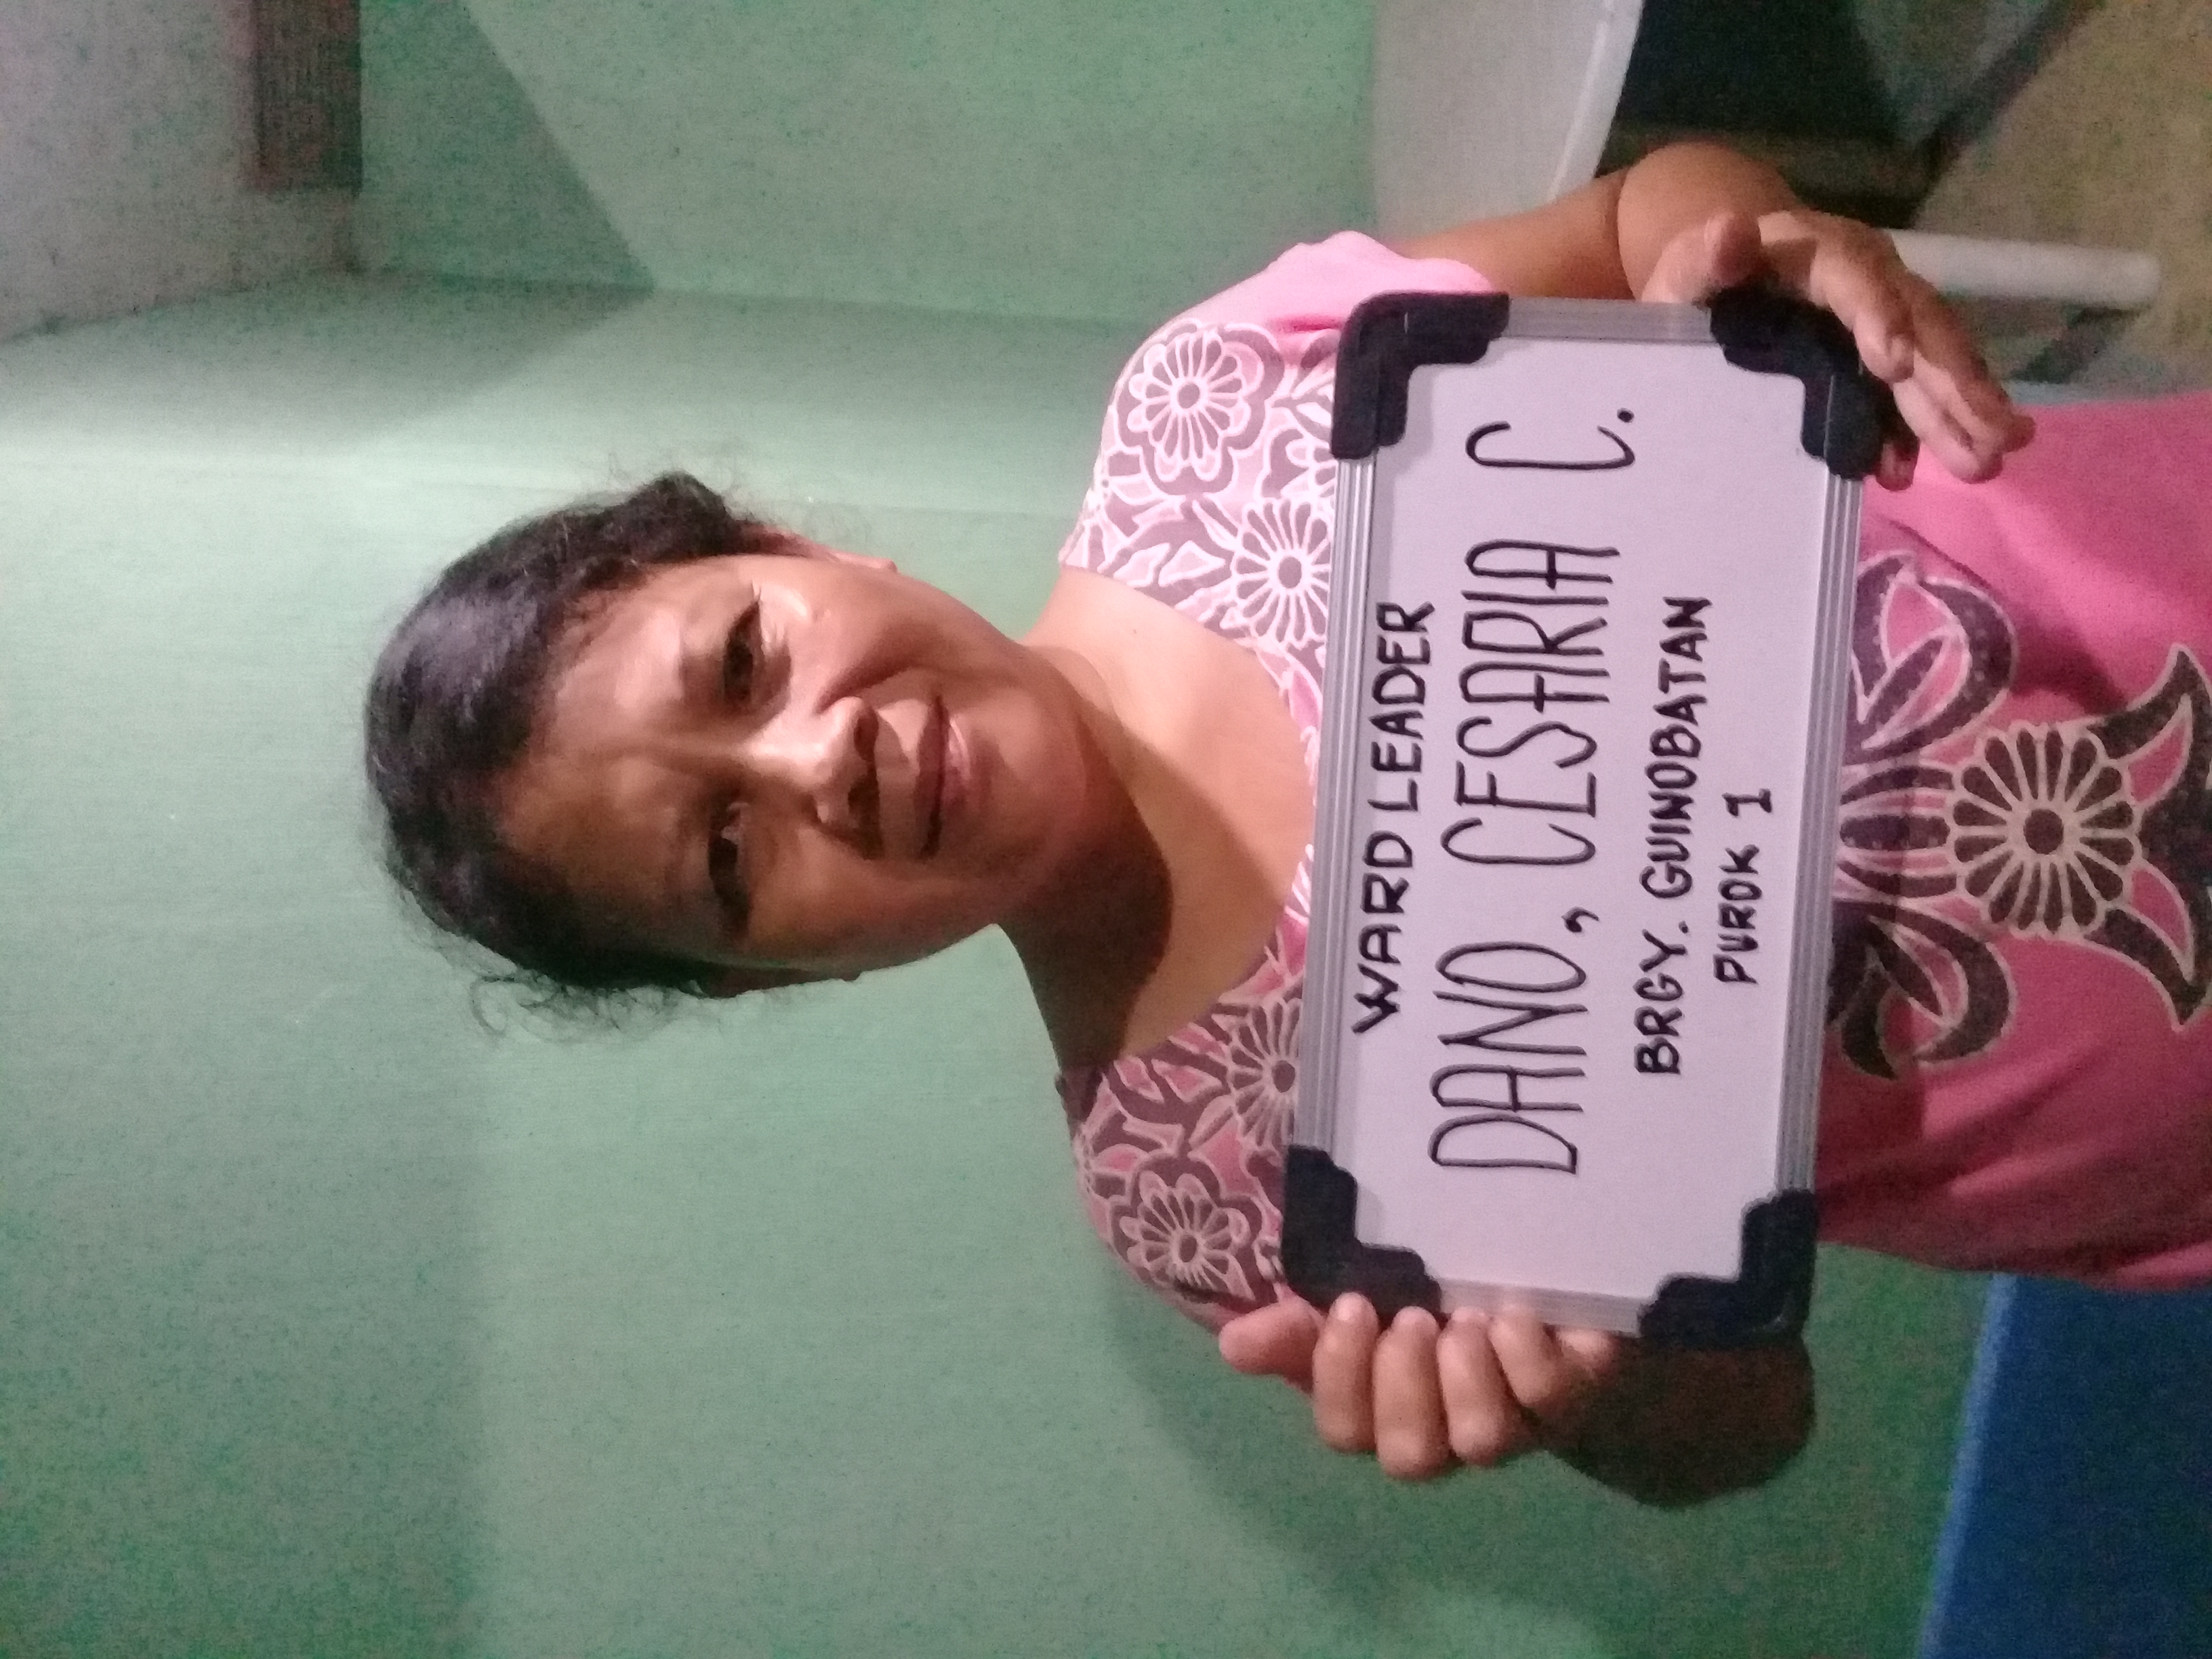 WARD LEADER
DANO, CESARIA C.
BRGY. GUINOBATAN
PUROK 1